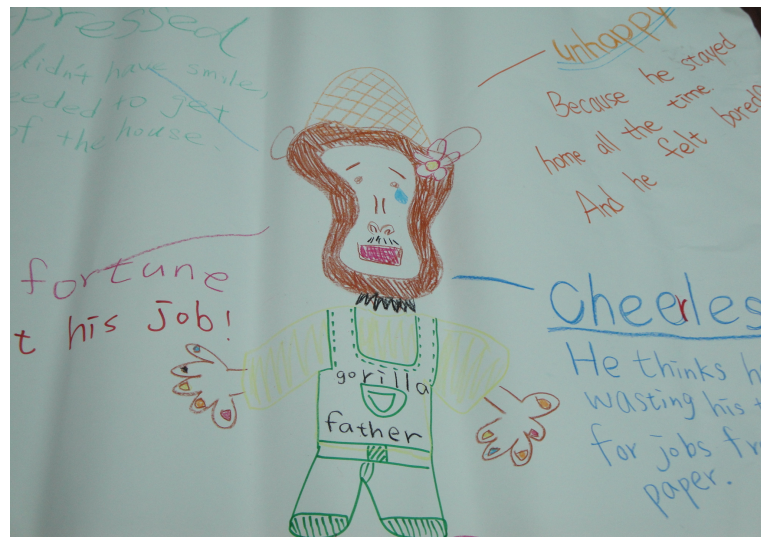 pressed
didn't have smile,
eeded to get
of the house.
unhappy
Because he stayed
home all the time.
And he felt bored
fortune
t his job!
Cheerles
He thinks h
wasting his
for jobs fr
paper.
gorilla
father